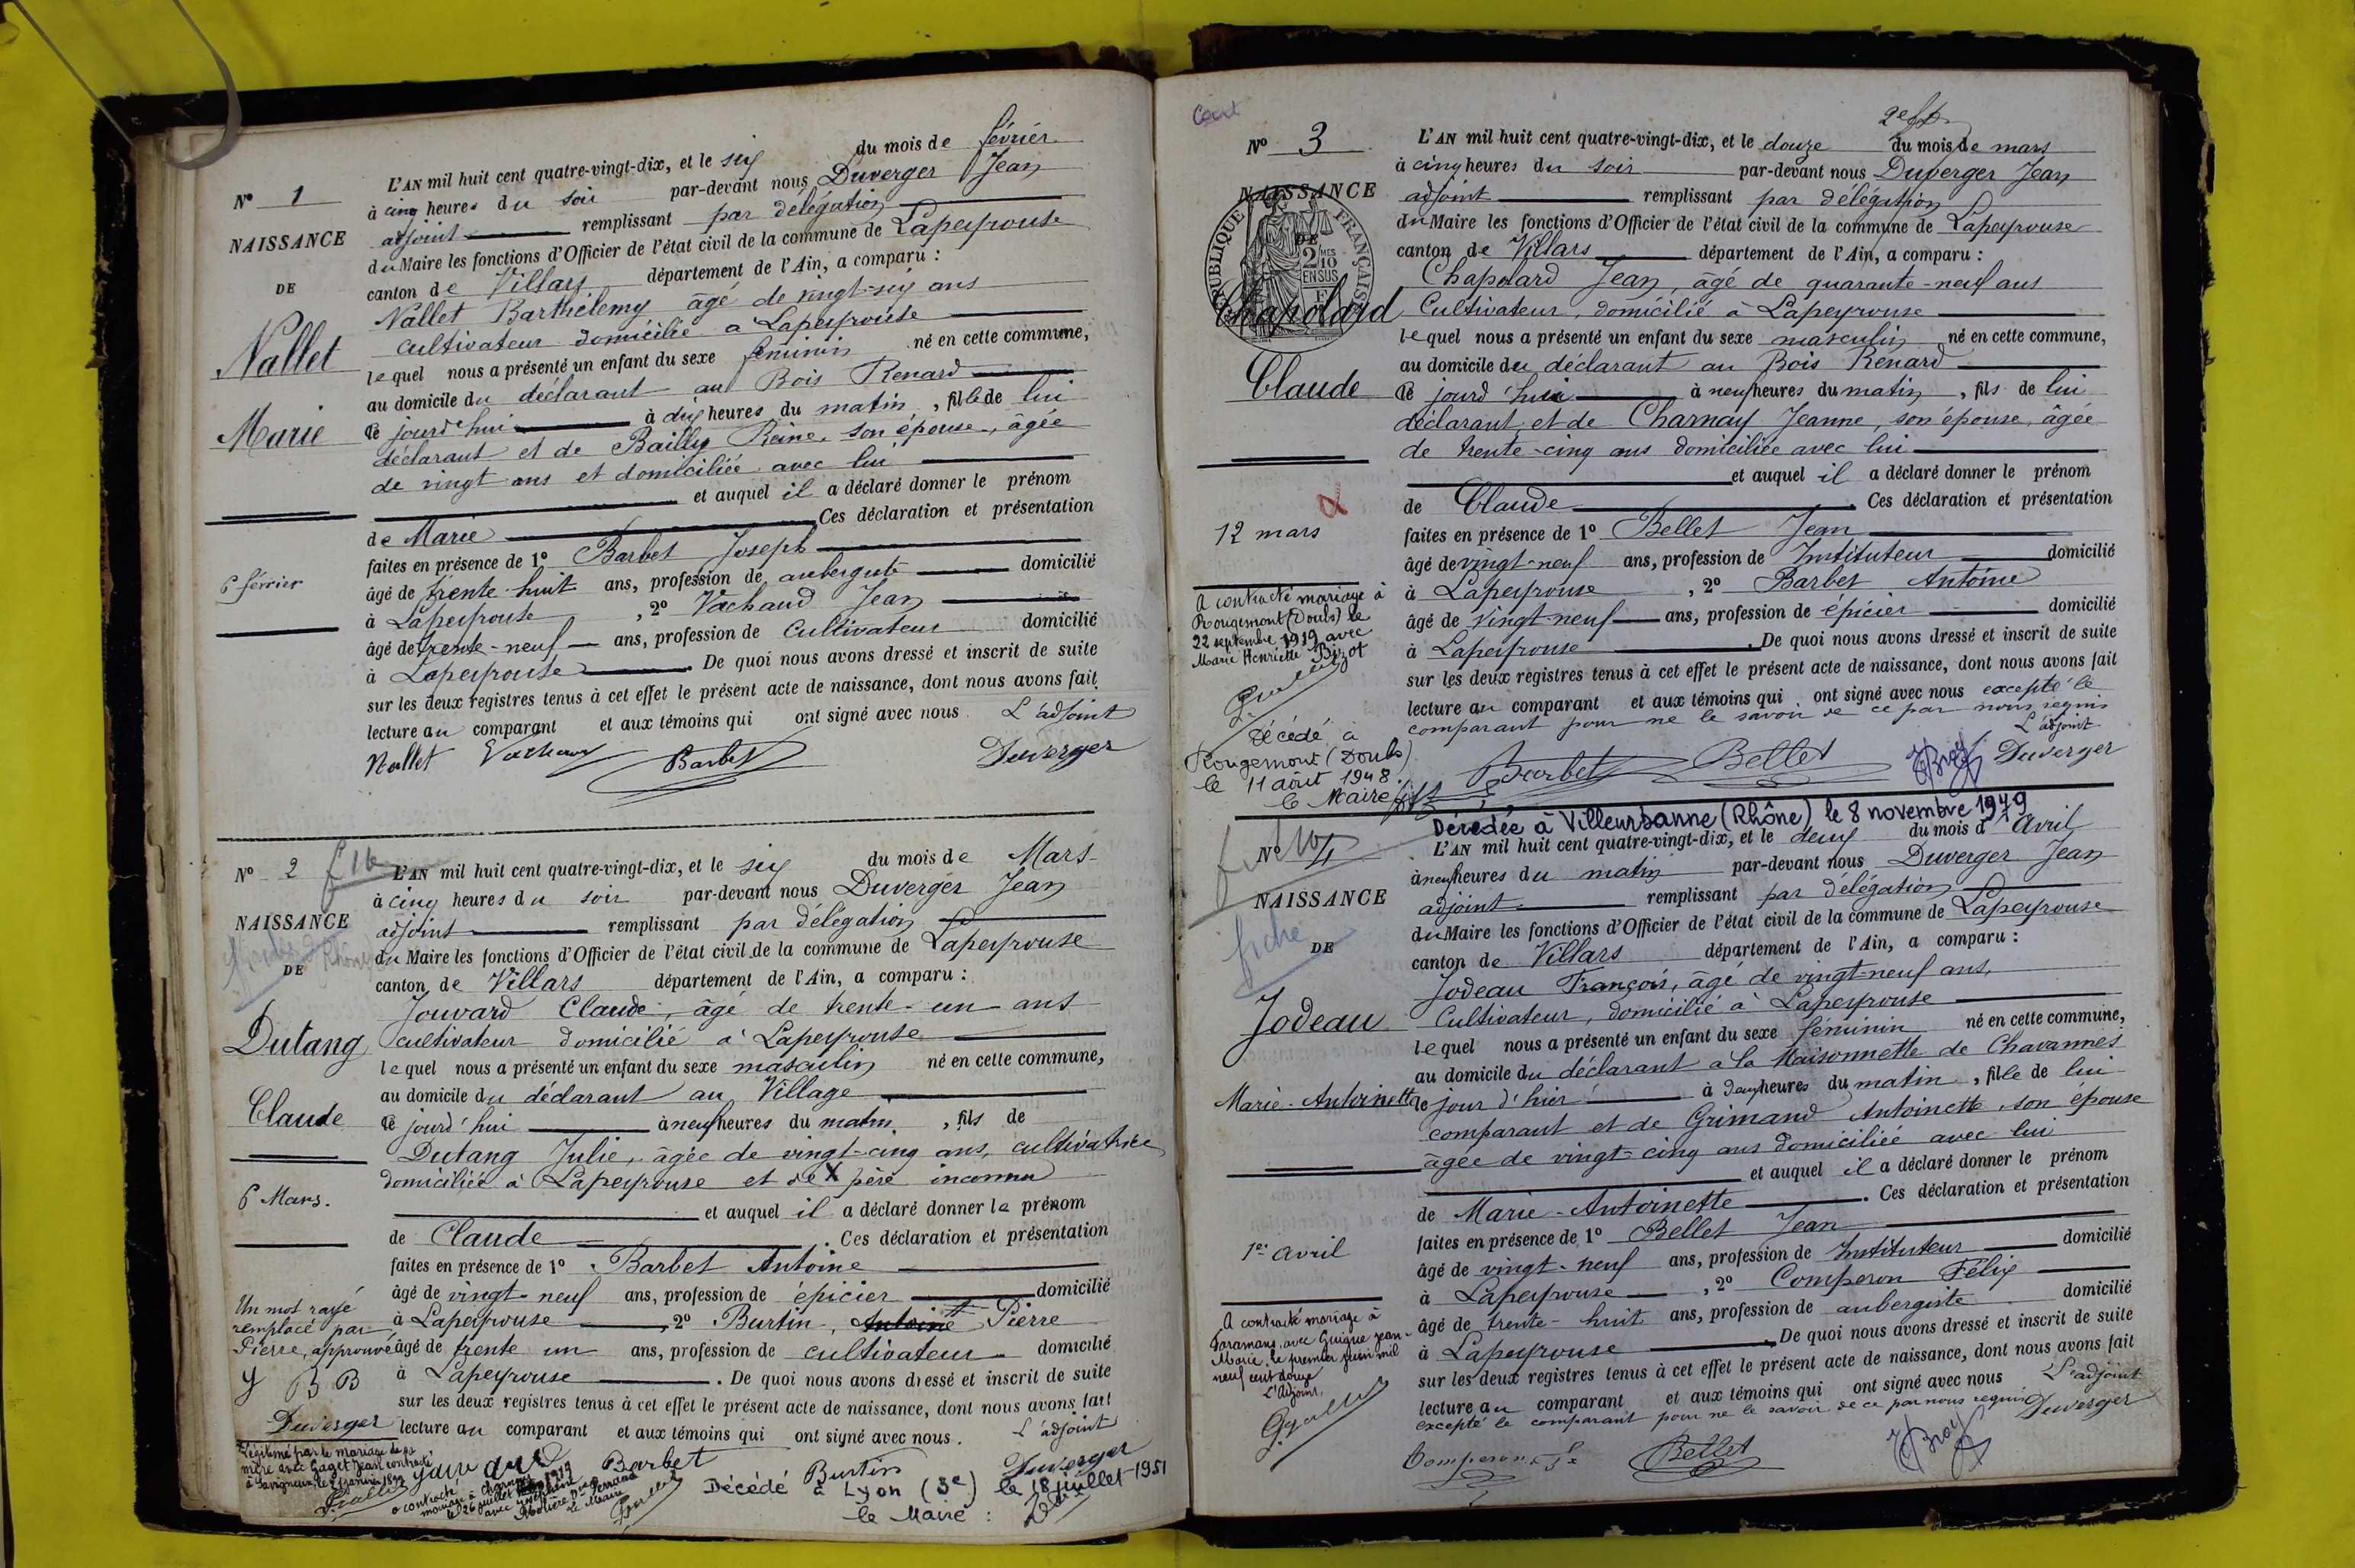 Nº 1
NAISSANCE
DE
Nallet
Marie
6 février
L'AN mil huit cent quatre-vingt-dix, et le six du mois de février
à cinq heures du soir par-devant nous Duverger Jean
adjoint remplissant par délégation
du Maire les fonctions d'Officier de l'état civil de la commune de Lapeyrouse
canton de Villars département de l'Ain, a comparu :
Nallet Barthélemy âgé de vingt-six ans
cultivateur domicilié à Lapeyrouse
lequel nous a présenté un enfant du sexe féminin né en cette commune,
au domicile du déclarant au Bois Renard
ce jourd'hui à dix heures du matin, fille de lui
déclarant et de Bailly Reine, son épouse, âgée
de vingt ans et domiciliée avec lui
et auquel il a déclaré donner le prénom
de Marie Ces déclaration et présentation
faites en présence de 1º Barbet Joseph
âgé de trente-huit ans, profession de aubergiste domicilié
à Lapeyrouse, 2º Vachaud Jean
âgé de trente-neuf ans, profession de Cultivateur domicilié
à Lapeyrouse. De quoi nous avons dressé et inscrit de suite
sur les deux registres tenus à cet effet le présent acte de naissance, dont nous avons fait
lecture au comparant et aux témoins qui ont signé avec nous. L'adjoint
Nallet Vachaud Barbet Duverger
Nº 2
NAISSANCE
DE
Dutang
Claude
6 Mars.
Un mot rayé
remplacé par
Pierre, approuvé
J B B
Duverger
Légitimé par le mariage de sa
mère avec Gaget Jean contracté
à Savigneux, le 2 janvier 1892
L'AN mil huit cent quatre-vingt-dix, et le six du mois de Mars
à cinq heures du soir par-devant nous Duverger Jean
adjoint remplissant par délégation
du Maire les fonctions d'Officier de l'état civil de la commune de Lapeyrouse
canton de Villars département de l'Ain, a comparu :
Jouvard Claude, âgé de trente-un ans
cultivateur domicilié à Lapeyrouse
lequel nous a présenté un enfant du sexe masculin né en cette commune,
au domicile du déclarant au Village
ce jourd'hui à neuf heures du matin, fils de
Dutang Julie, âgée de vingt-cinq ans, cultivatrice
domiciliée à Lapeyrouse et de X père inconnu
et auquel il a déclaré donner le prénom
de Claude. Ces déclaration et présentation
faites en présence de 1º Barbet Antoine
âgé de vingt-neuf ans, profession de épicier domicilié
à Lapeyrouse, 2º Burtin, Antoine Pierre
âgé de trente un ans, profession de cultivateur domicilié
à Lapeyrouse. De quoi nous avons dressé et inscrit de suite
sur les deux registres tenus à cet effet le présent acte de naissance, dont nous avons fait
lecture au comparant et aux témoins qui ont signé avec nous. L'adjoint
Barbet Burtin Duverger
a contracté
mariage à
le 26 juillet 1919
avec
Le Maire
Décédé à Lyon (3e) le 18 juillet 1951
le Maire :
Nº 3
NAISSANCE
DE
RÉPUBLIQUE FRANÇAISE
2 MES
10
EN SUS
Chapolard
Claude
12 mars
A contracté mariage à
Rougemont (Doubs) le
22 septembre 1919 avec
Marie Henriette Bizot
Décédé à
Rougemont (Doubs)
le 11 août 1948.
le Maire
L'AN mil huit cent quatre-vingt-dix, et le douze du mois de mars
à cinq heures du soir par-devant nous Duverger Jean
adjoint remplissant par délégation
du Maire les fonctions d'Officier de l'état civil de la commune de Lapeyrouse
canton de Villars département de l'Ain, a comparu :
Chapolard Jean, âgé de quarante-neuf ans
Cultivateur, domicilié à Lapeyrouse
lequel nous a présenté un enfant du sexe masculin né en cette commune,
au domicile du déclarant au Bois Renard
ce jourd'hui à neuf heures du matin, fils de lui
déclarant et de Charnay Jeanne, son épouse, âgée
de trente-cinq ans domiciliée avec lui
et auquel il a déclaré donner le prénom
de Claude. Ces déclaration et présentation
faites en présence de 1º Bellet Jean
âgé de vingt-neuf ans, profession de Instituteur domicilié
à Lapeyrouse, 2º Barbet Antoine
âgé de vingt-neuf ans, profession de épicier domicilié
à Lapeyrouse. De quoi nous avons dressé et inscrit de suite
sur les deux registres tenus à cet effet le présent acte de naissance, dont nous avons fait
lecture au comparant et aux témoins qui ont signé avec nous excepté le
comparant pour ne le savoir de ce par nous requis
L'adjoint
Barbet Bellet Duverger
Décédée à Villeurbanne (Rhône) le 8 novembre 1949
Nº 4
NAISSANCE
fiche
DE
Jodeau
Marie-Antoinette
1er avril
A contracté mariage à
Faramans, avec Guigue Jean-
Marie, le premier juin mil
neuf cent douze
L'Adjoint,
L'AN mil huit cent quatre-vingt-dix, et le deux du mois d'avril
à neuf heures du matin par-devant nous Duverger Jean
adjoint remplissant par délégation
du Maire les fonctions d'Officier de l'état civil de la commune de Lapeyrouse
canton de Villars département de l'Ain, a comparu :
Jodeau François, âgé de vingt-neuf ans,
Cultivateur, domicilié à Lapeyrouse
lequel nous a présenté un enfant du sexe féminin né en cette commune,
au domicile du déclarant à la Maisonnette de Chavannes
le jour d'hier à deux heures du matin, fille de lui
comparant et de Grimand Antoinette, son épouse
âgée de vingt-cinq ans domiciliée avec lui
et auquel il a déclaré donner le prénom
de Marie-Antoinette. Ces déclaration et présentation
faites en présence de 1º Bellet Jean
âgé de vingt-neuf ans, profession de Instituteur domicilié
à Lapeyrouse, 2º Comperon Félix
âgé de trente-huit ans, profession de aubergiste domicilié
à Lapeyrouse. De quoi nous avons dressé et inscrit de suite
sur les deux registres tenus à cet effet le présent acte de naissance, dont nous avons fait
lecture au comparant et aux témoins qui ont signé avec nous L'adjoint
excepté le comparant pour ne le savoir de ce par nous requis Duverger
Comperon Bellet